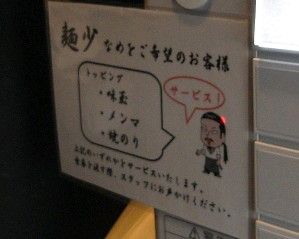 麺少なめをご希望のお客様
トッピング
・味玉
・メンマ
・焼のり
サービス！
上記のいずれかをサービスいたします。
食券を渡す際、スタッフにお声かけください。